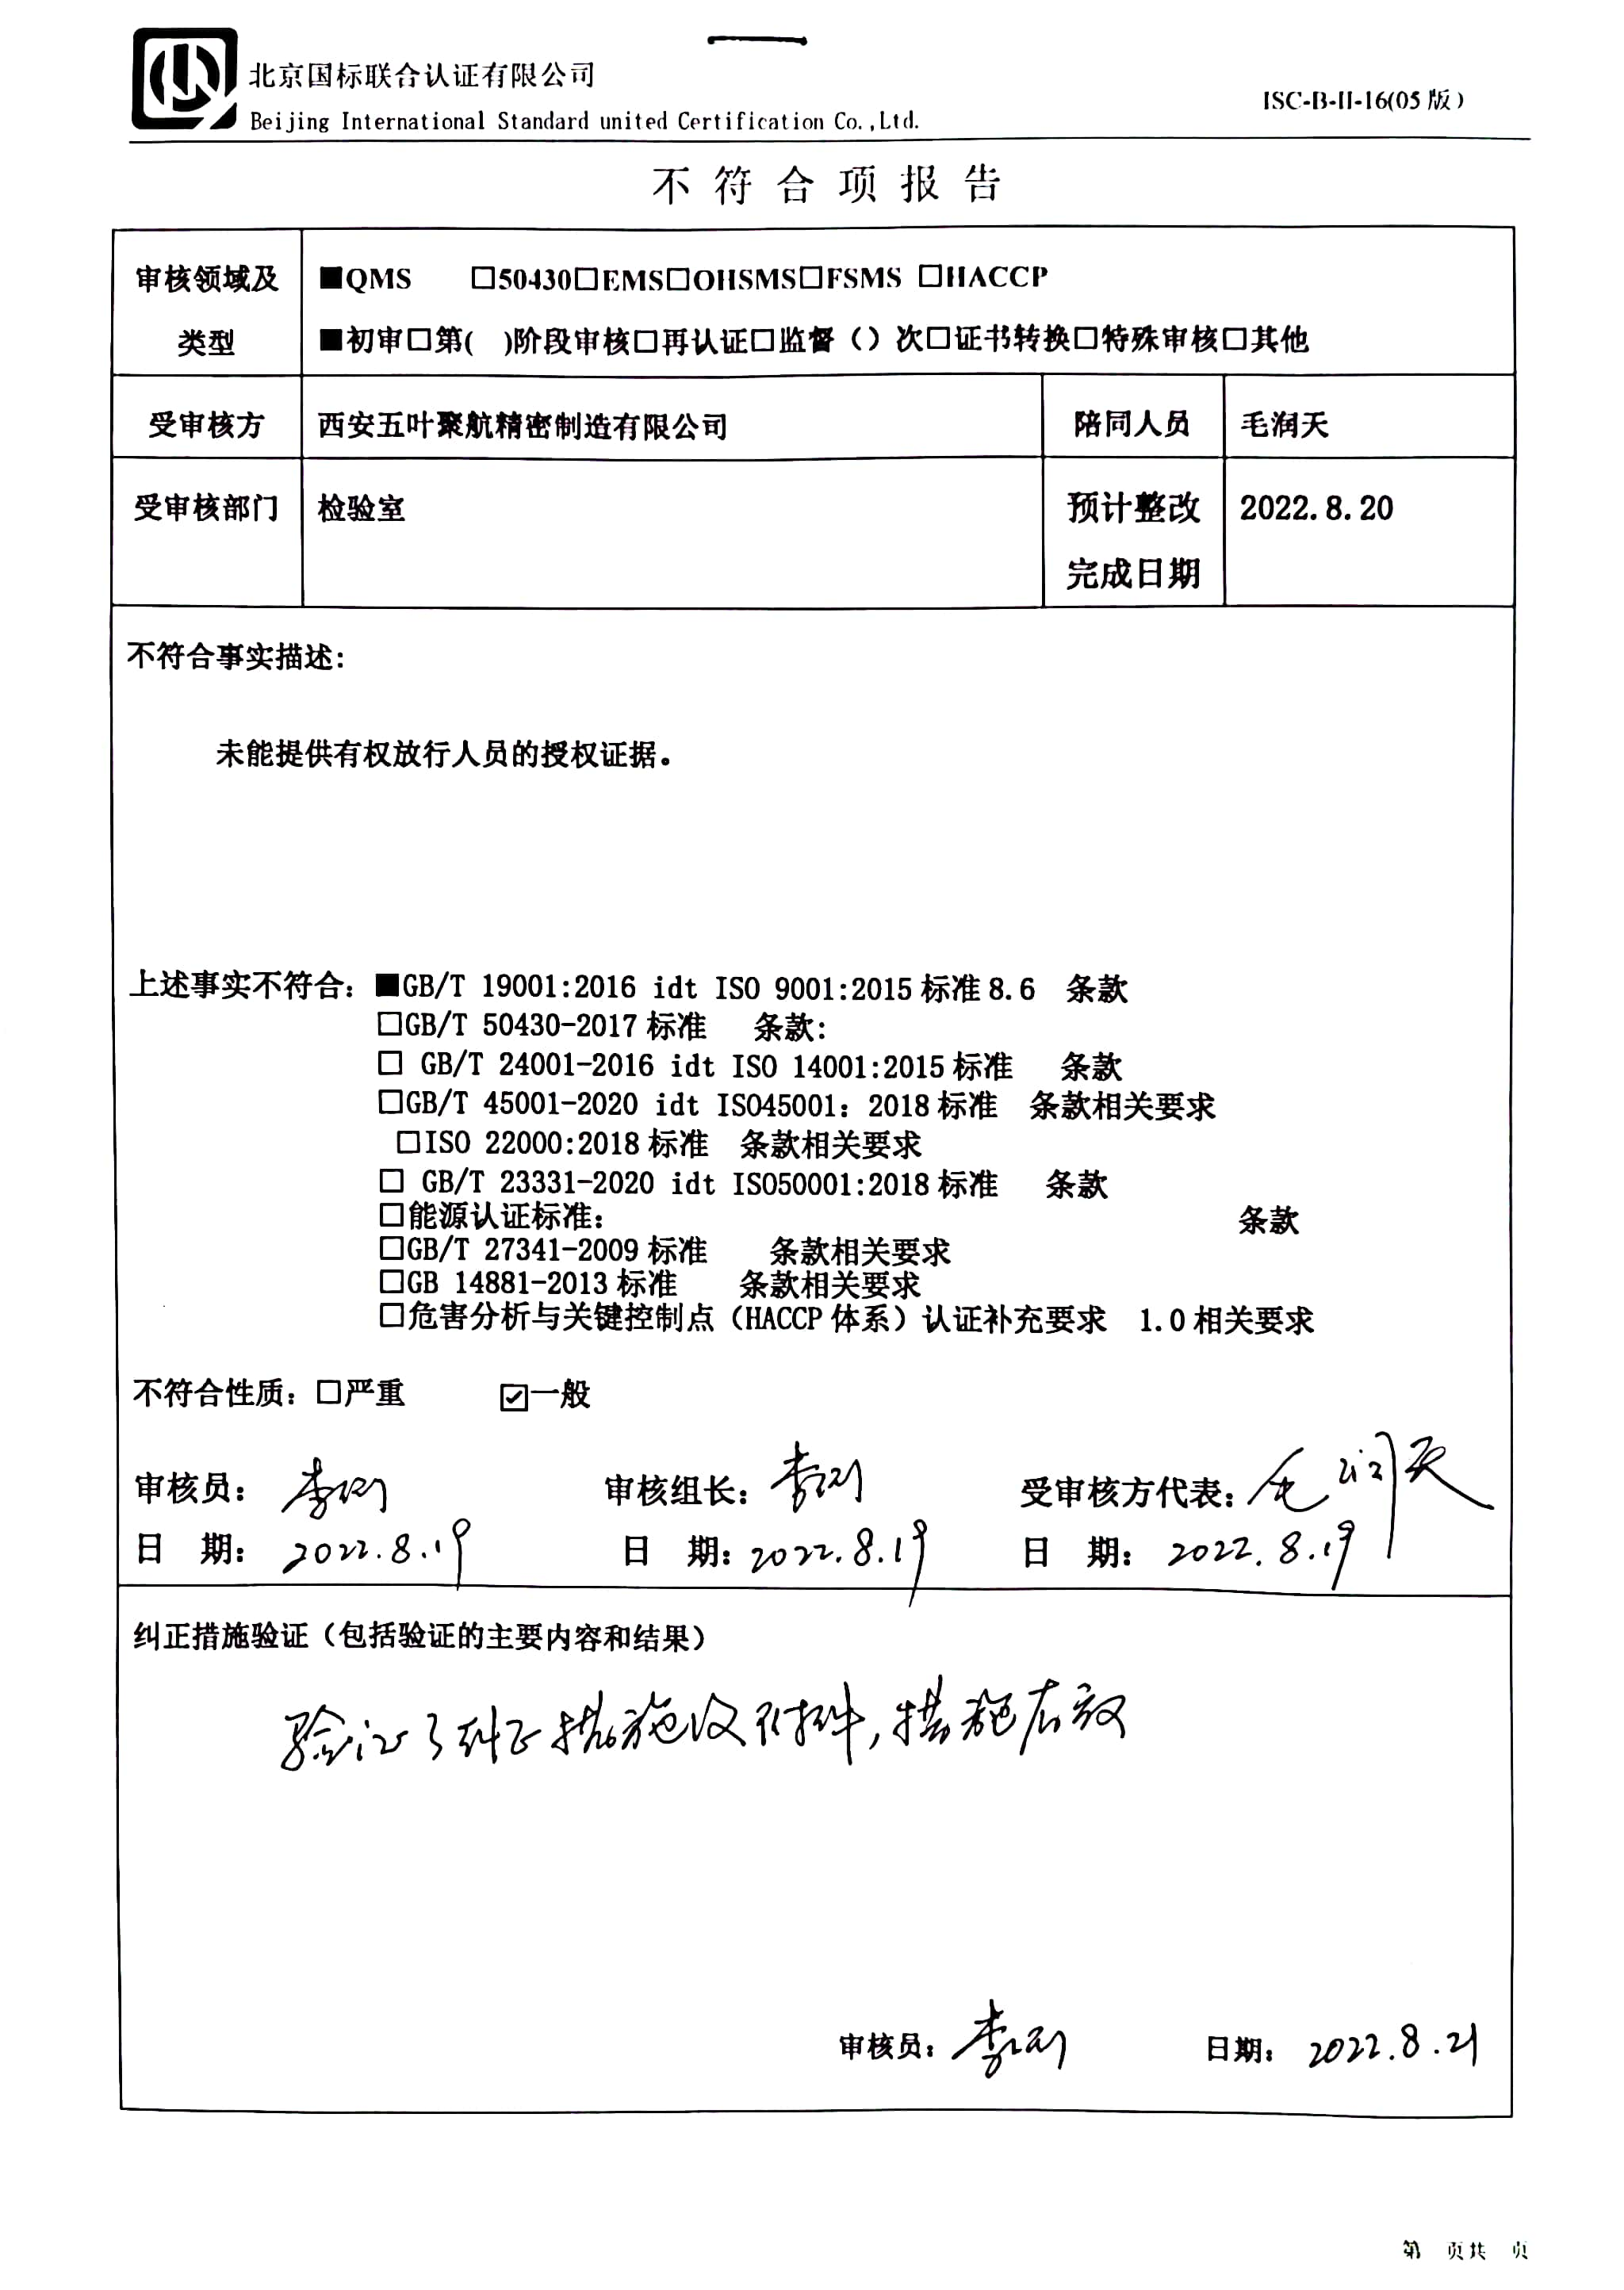 北京国标联合认证有限公司
Beijing International Standard united Certification Co.,Ltd.
ISC-B-II-16(05版)
不符合项报告
审核领域及类型
■QMS □50430□EMS□OHSMS□FSMS □HACCP
■初审□第( )阶段审核□再认证□监督（）次□证书转换□特殊审核□其他
受审核方 西安五叶聚航精密制造有限公司 陪同人员 毛润天
受审核部门 检验室 预计整改完成日期 2022.8.20
不符合事实描述:
未能提供有权放行人员的授权证据。
上述事实不符合：■GB/T 19001:2016 idt ISO 9001:2015标准8.6 条款
□GB/T 50430-2017标准 条款:
□ GB/T 24001-2016 idt ISO 14001:2015标准 条款
□GB/T 45001-2020 idt ISO45001：2018标准 条款相关要求
□ISO 22000:2018标准 条款相关要求
□ GB/T 23331-2020 idt ISO50001:2018标准 条款
□能源认证标准： 条款
□GB/T 27341-2009标准 条款相关要求
□GB 14881-2013标准 条款相关要求
□危害分析与关键控制点（HACCP体系）认证补充要求 1.0相关要求
不符合性质：□严重 ☑一般
审核员： 审核组长： 受审核方代表：毛润天
日 期：2022.8.19 日 期：2022.8.19 日 期：2022.8.19
纠正措施验证（包括验证的主要内容和结果）
验证了纠正措施及附件,措施有效
审核员： 日期：2022.8.21
第 页共 页